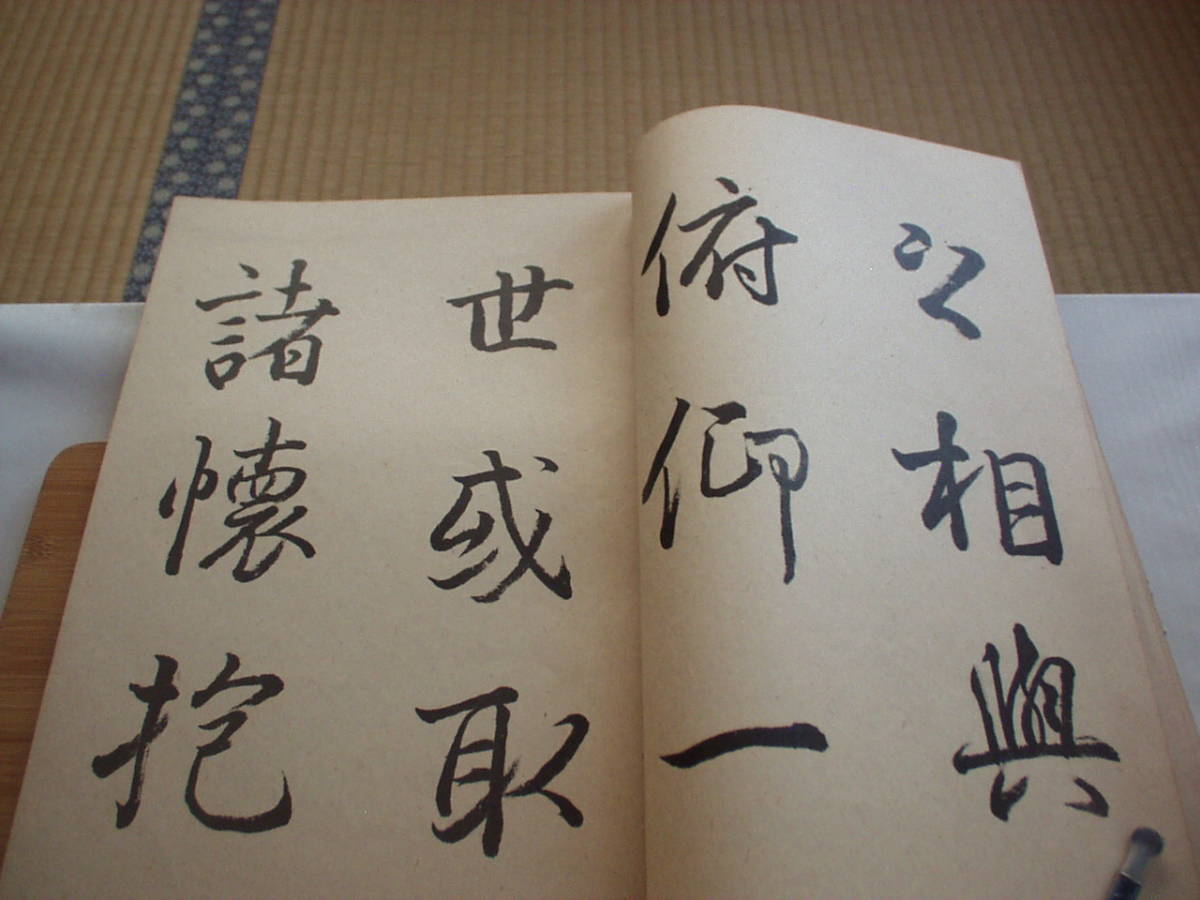 之相與
俯仰一
世或取
諸懷抱